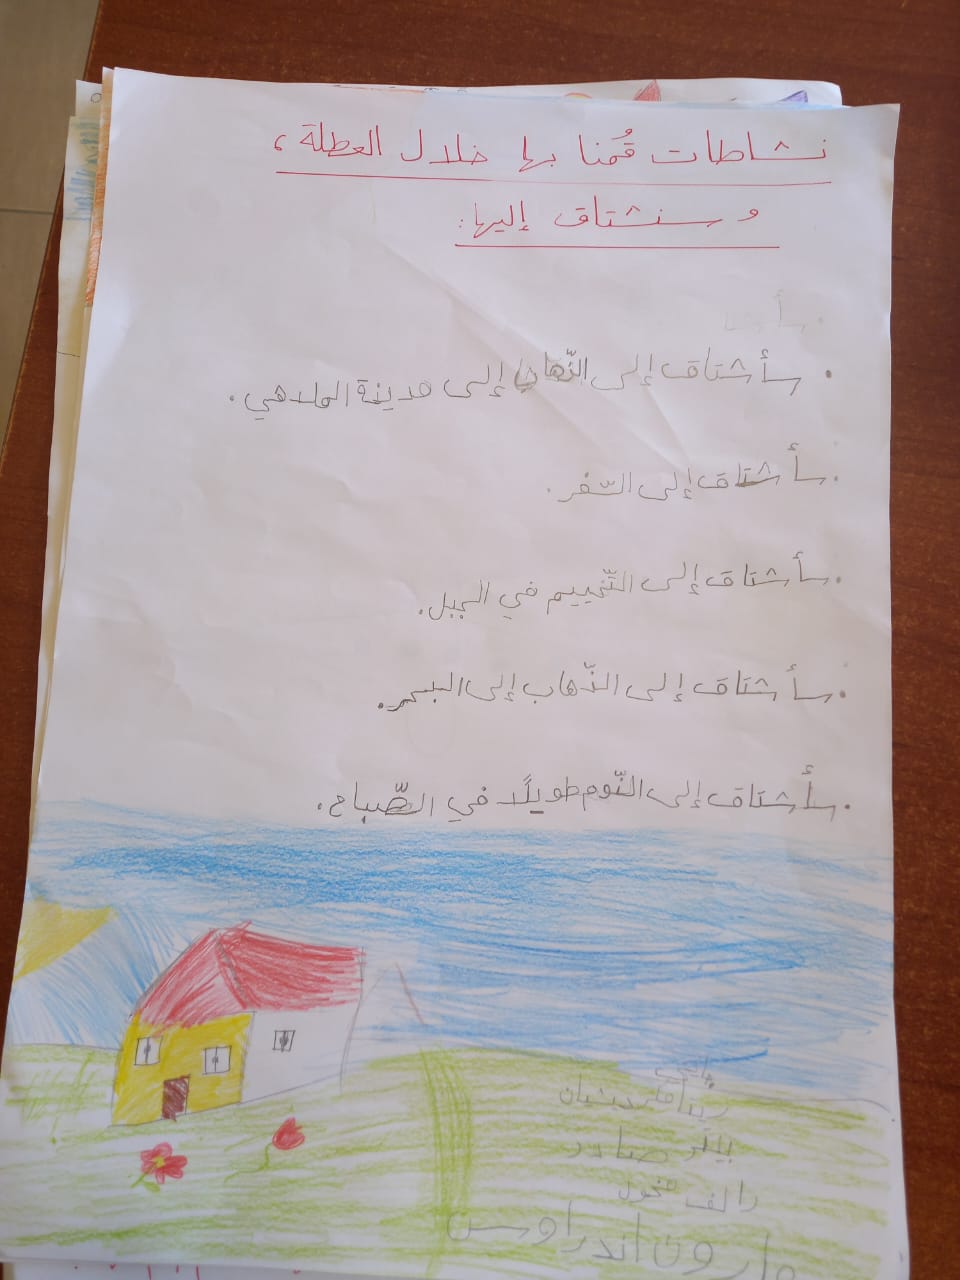 نشاطات قُمنا بها خلال العطلة،
و سنشتاق إليها:
سأ
. سأشتاق إلى الذّهاب إلى مدينة الملاهي.
. سأشتاق إلى السّفر.
. سأشتاق إلى التّخييم في الجبل.
. سأشتاق إلى الذّهاب إلى البحر.
. سأشتاق إلى النّوم طويلًا في الصّباح.
بيتر صادر
رالف نخول
مارون اندراوس